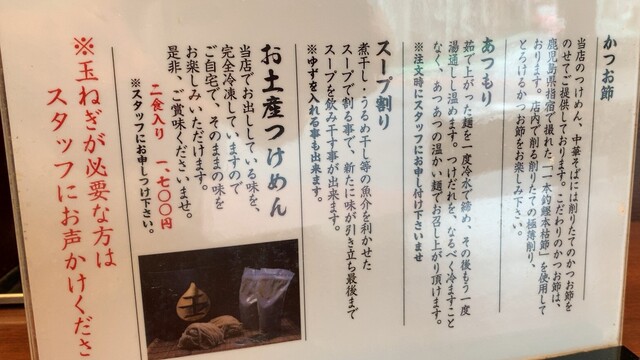 かつお節
当店のつけめん、中華そばには削りたてのかつお節を
のせてご提供しております。こだわりのかつお節は、
鹿児島県指宿で獲れた「一本釣鰹本枯節」を使用して
おります。店内で削る削りたての極薄削り、
とろけるかつお節をお楽しみ下さい。
あつもり
茹で上がった麺を一度冷水で締め、その後もう一度
湯通しし温めます。つけだれを、なるべく冷ますこと
なく、あつあつの温かい麺でお召し上がり頂けます。
※注文時にスタッフにお申し付け下さいませ
スープ割り
煮干し・うるめ干し等の魚介を利かせた
スープで割る事で、新たに味が引き立ち最後まで
スープを飲み干す事が出来ます。
※ゆずを入れる事も出来ます。
お土産つけめん
当店でお出ししている味を、
完全冷凍していますので
ご自宅で、そのままの味を
お楽しみいただけます。
是非、ご賞味くださいませ。
二食入り 一、七〇〇円
※スタッフにお申しつけ下さい。
※玉ねぎが必要な方は
スタッフにお声かけくださ